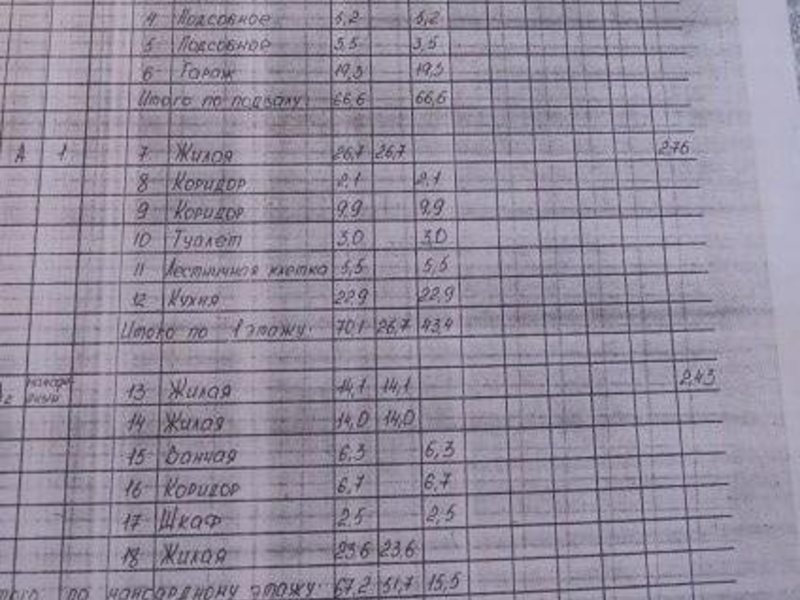 4 Подсобное 5,2 5,2
5 Подсобное 3,5 3,5
6 Гараж 19,3 19,3
Итого по подвалу: 66,6 66,6
А 1 7 Жилая 26,7 26,7 2.76
8 Коридор 2,1 2,1
9 Коридор 9,9 9,9
10 Туалет 3,0 3,0
11 Лестничная клетка 5,5 5,5
12 Кухня 22,9 22,9
Итого по 1 этажу: 70,1 26,7 43,4
мансардный 13 Жилая 14,1 14,1 2,43
14 Жилая 14,0 14,0
15 Ванная 6,3 6,3
16 Коридор 6,7 6,7
17 Шкаф 2,5 2,5
18 Жилая 23,6 23,6
по мансардному этажу: 67,2 51,7 15,5